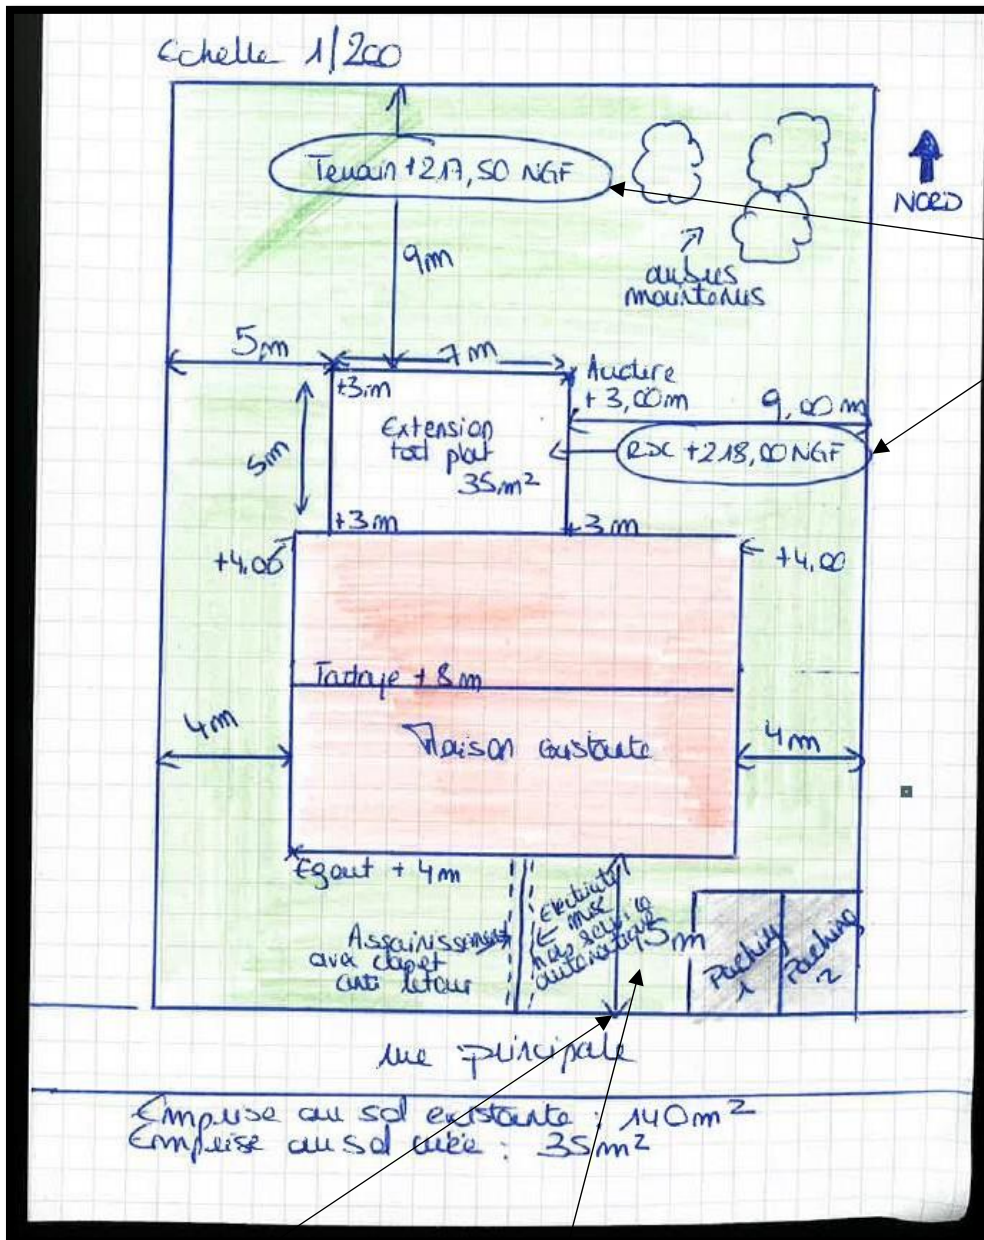 Echelle 1/200
Terrain +217,50 NGF
NORD
9m
arbres
maintenus
5m
7m
+3m
Acrotère
+ 3,00m
9,00m
Extension
toit plat
35m²
5m
RDC +218,00 NGF
+3m
+3m
+4.00
+4,00
Faitage +8m
4m
Maison existante
4m
Egout + 4m
Assainissement
avec clapet
anti retour
Electricité
mise
hors service
automatique
5m
Parking
1
Parking
2
rue principale
Emprise au sol existante : 140m²
Emprise au sol créée : 35m²